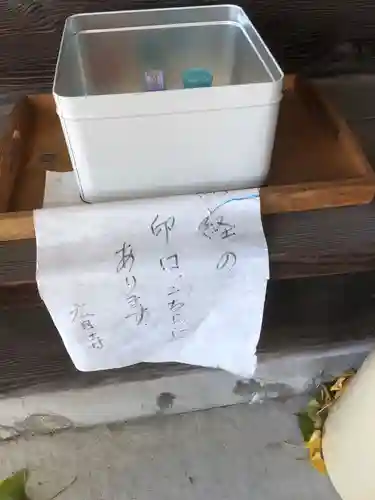 経の
印は、こちらに
あります